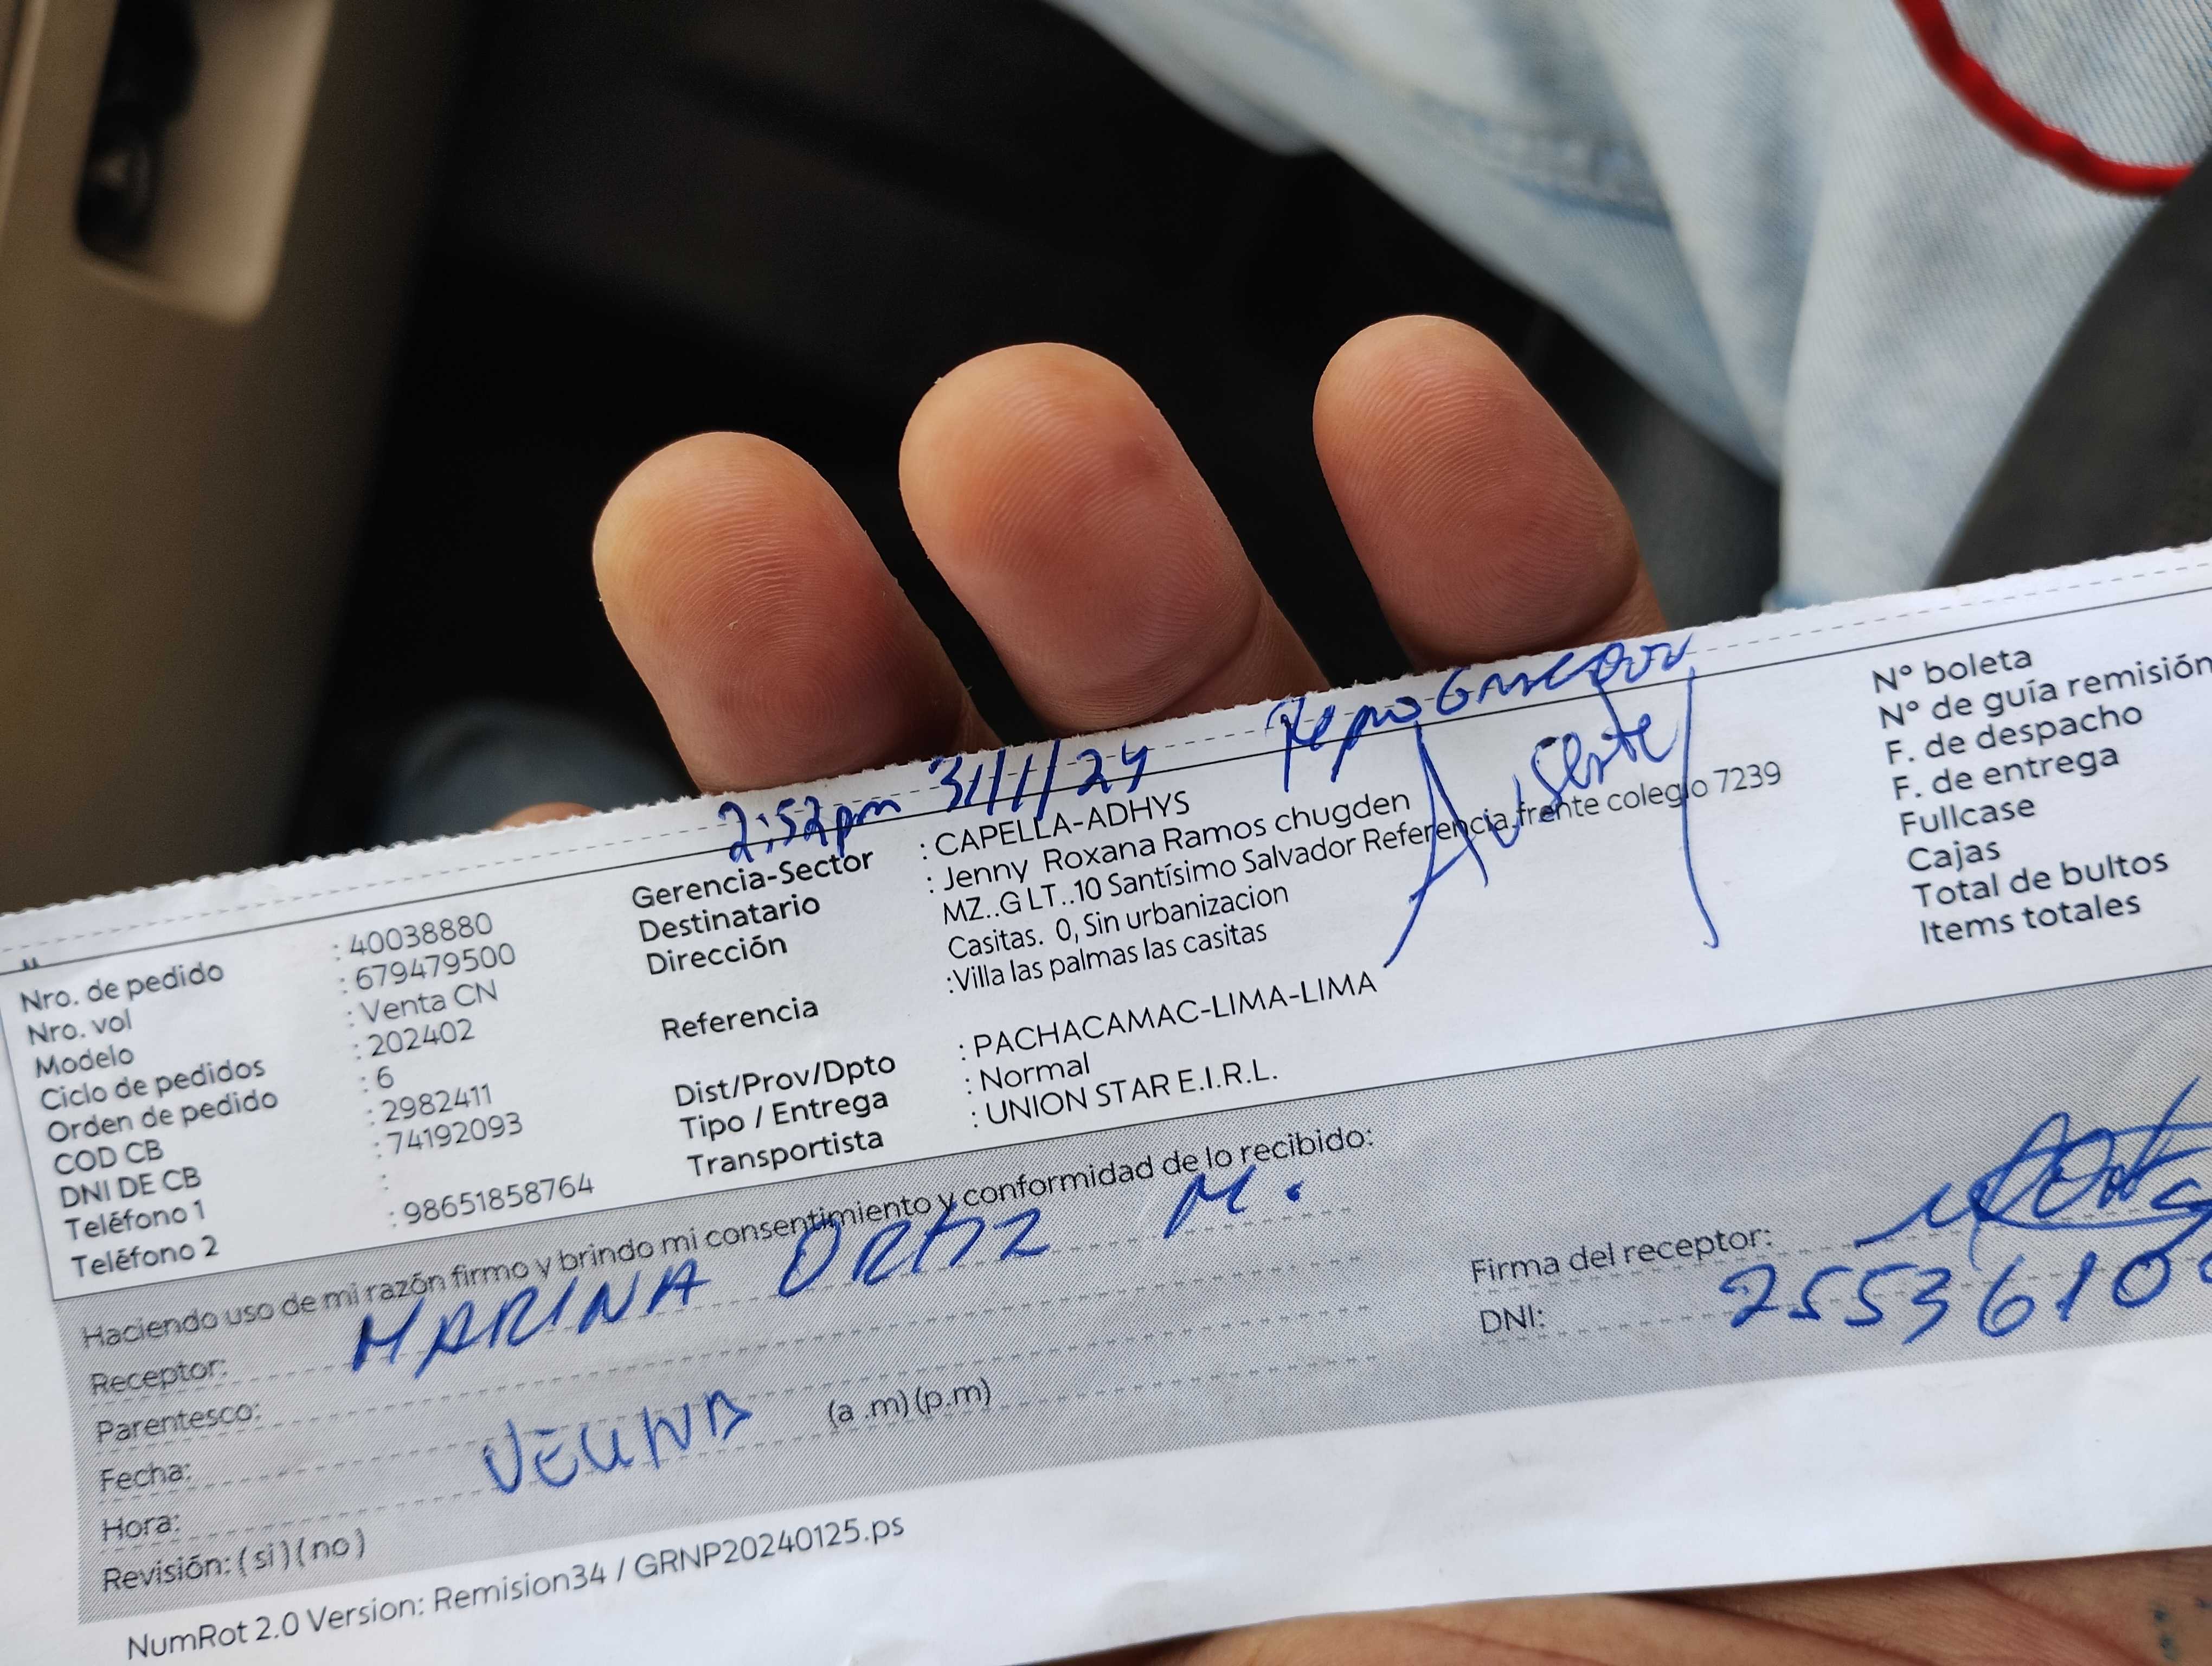 2:52pm 31/1/24 Reprogramador
Ausente
Nro. de pedido : 40038880
Nro. vol : 679479500
Modelo : Venta CN
Ciclo de pedidos : 202402
Orden de pedido : 6
COD CB : 2982411
DNI DE CB : 74192093
Teléfono 1 :
Teléfono 2 : 98651858764
Gerencia-Sector : CAPELLA-ADHYS
Destinatario : Jenny Roxana Ramos chugden
Dirección MZ..G LT..10 Santísimo Salvador Referencia.frente colegio 7239
Casitas. 0, Sin urbanizacion
Referencia :Villa las palmas las casitas
Dist/Prov/Dpto : PACHACAMAC-LIMA-LIMA
Tipo / Entrega : Normal
Transportista : UNION STAR E.I.R.L.
N° boleta
N° de guía remisión
F. de despacho
F. de entrega
Fullcase
Cajas
Total de bultos
Items totales
Haciendo uso de mi razón firmo y brindo mi consentimiento y conformidad de lo recibido:
Receptor: MARINA ORTIZ M.
Parentesco:
Fecha: VECINA
Hora: (a .m) (p.m)
Revisión: ( si ) ( no )
Firma del receptor:
DNI: 2553610
NumRot 2.0 Version: Remision34 / GRNP20240125.ps